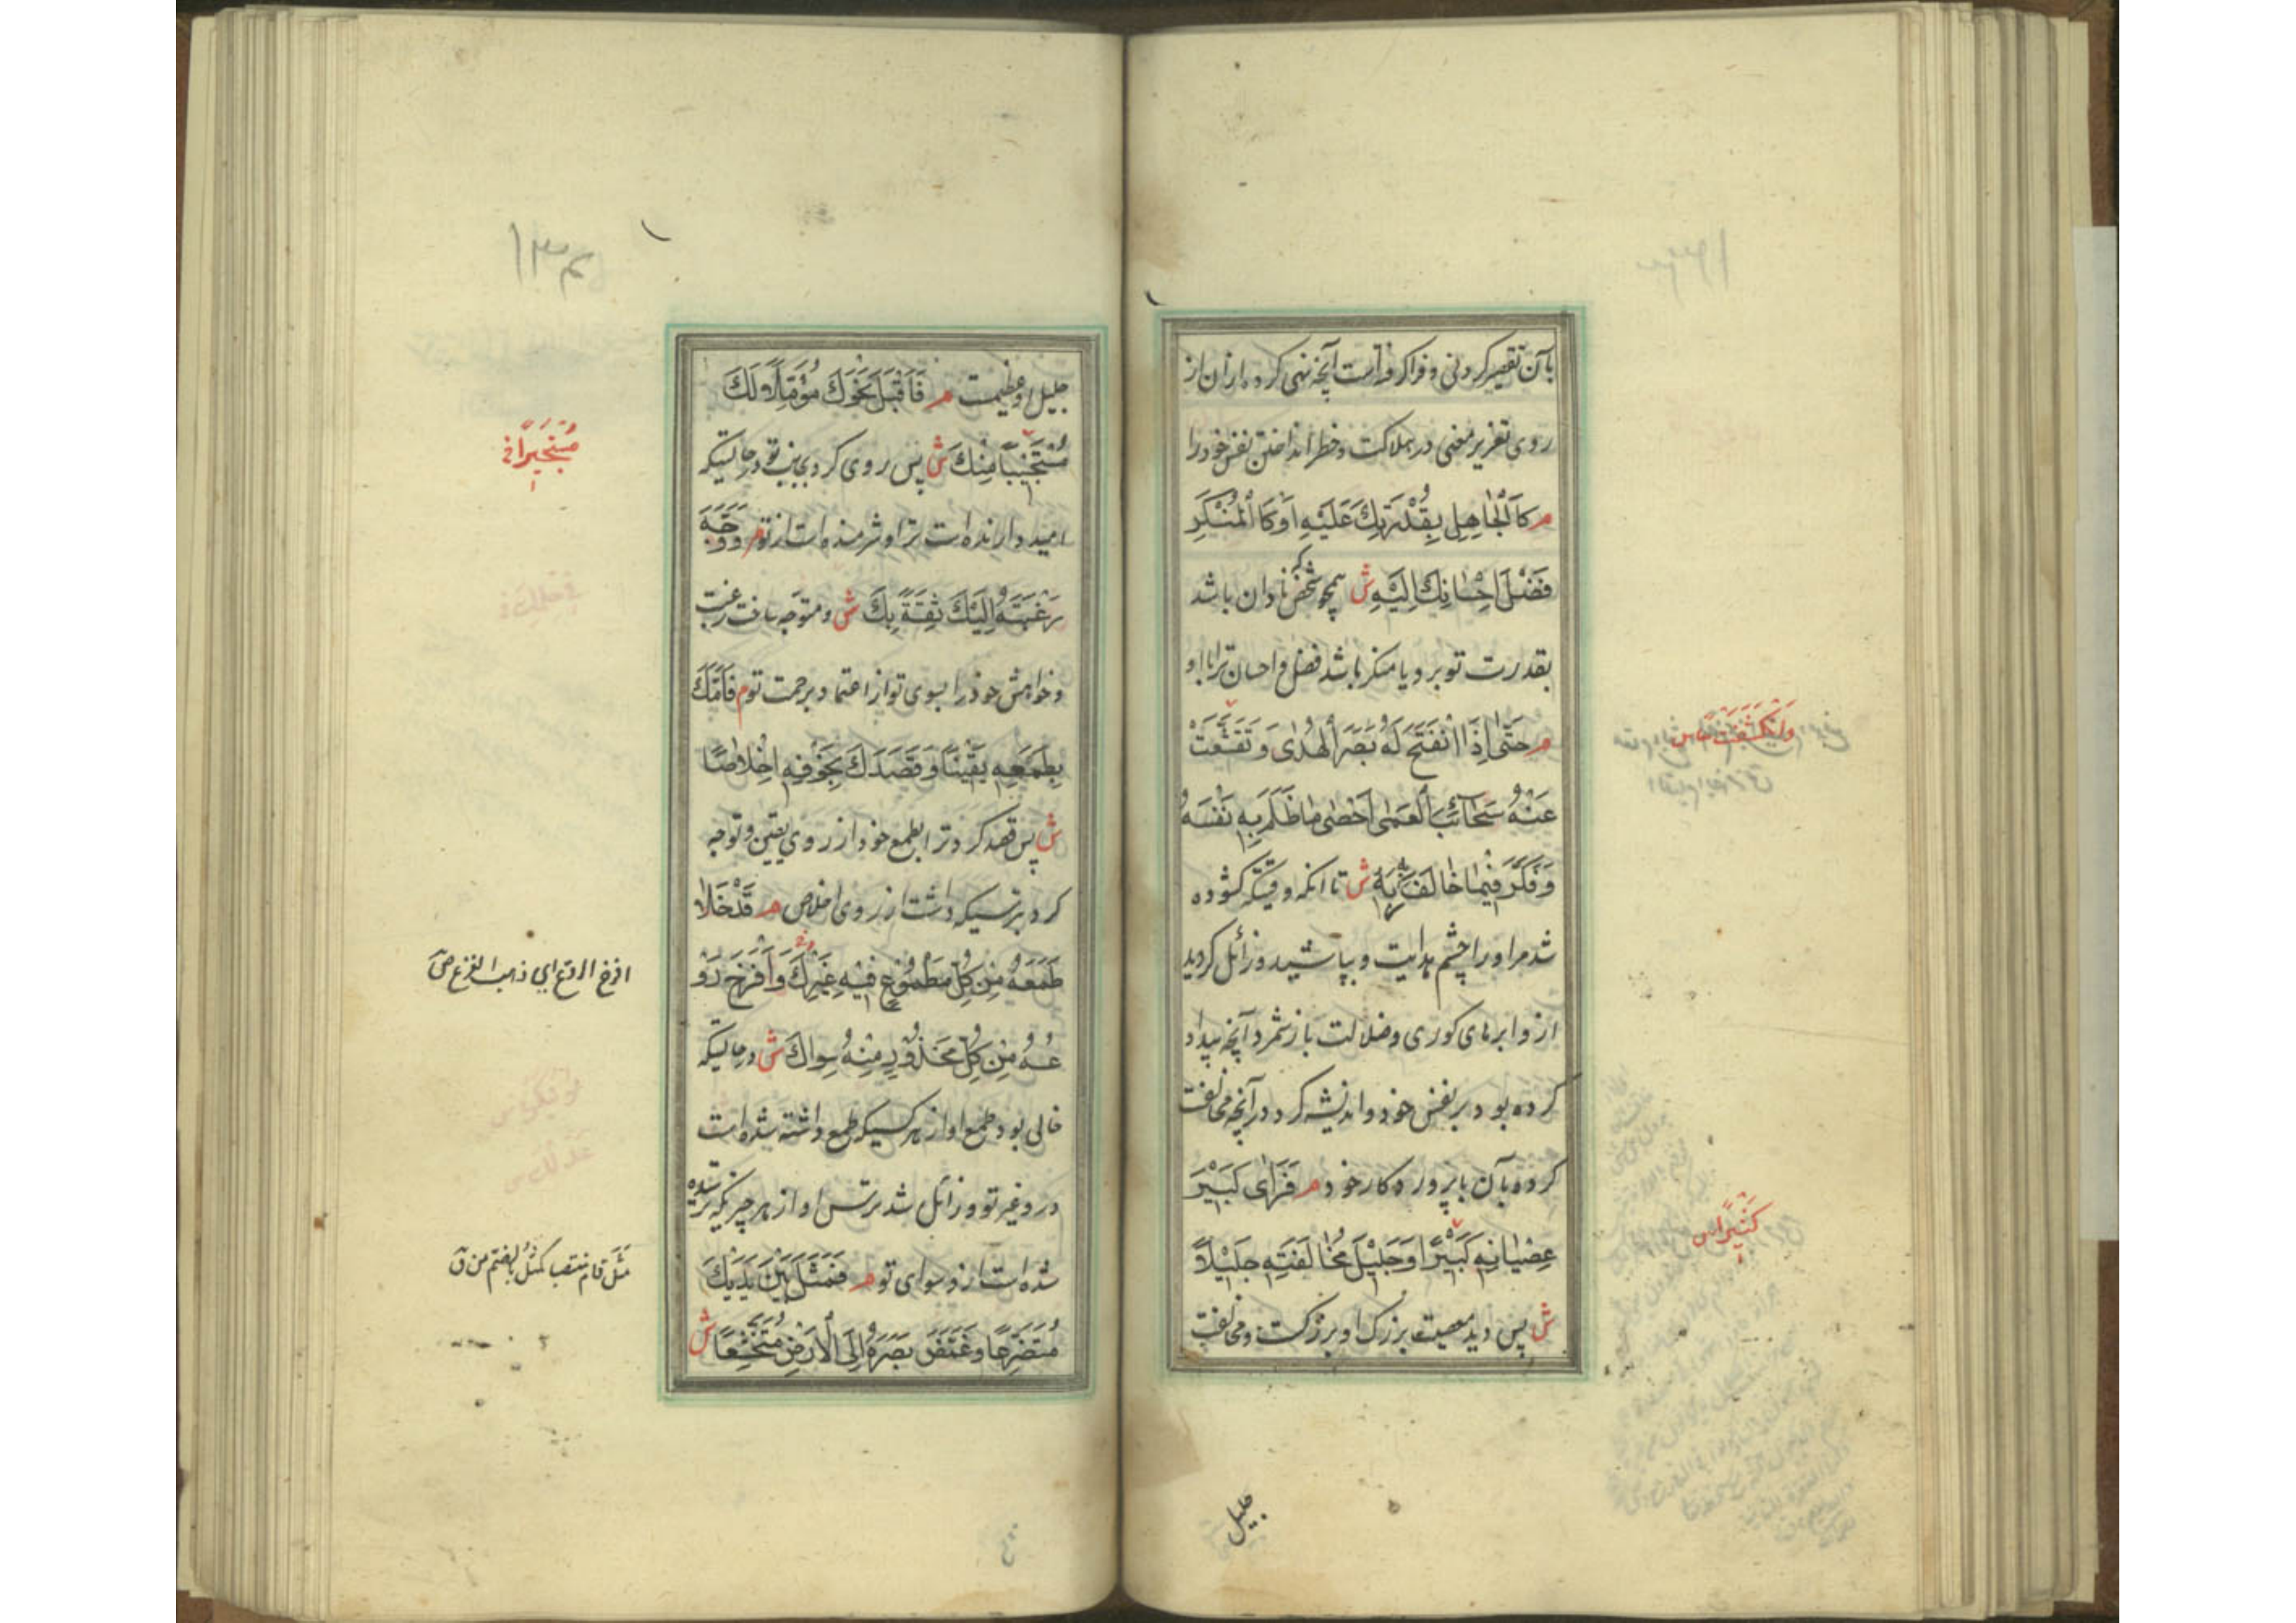 بآن تقصیر کردنی و فراکرفته است آنچه نهی کرده از آن از
روی تغزیر معنی در هلاکت و خطر انداختن نفس خود را
م كَالْجَاهِلِ بِقُدْرَتِكَ عَلَيْهِ اَوْ كَالْمُنْكِرِ
فَضْلَ اِحْسَانِكَ اِلَيْهِ ش همچو شخصی که نادان باشد
بقدرت تو بر و یا منکر باشد فضل و احسان ترا باو
م حَتّٰى اِذَا انْفَتَحَ لَهُ بَصَرُ الْهُدٰى وَ تَقَشَّعَتْ
عَنْهُ سَحَائِبُ الْعَمٰى اَحْصٰى مَا ظَلَمَ بِهِ نَفْسَهُ
وَ فَكَّرَ فِيمَا خَالَفَ بِهِ رَبَّهُ ش تا آنکه وقتیکه کشوده
شد مر او را چشم هدایت و بپاشید و زائل کردید
از و ابرهای کوری و ضلالت باز شمرد آنچه بیداد
کرده بود بر نفس خود و اندیشه کرد در آنچه مخالفت
کرده بآن با پروردکار خود م فَرَاٰى كَبِيْرَ
عِصْيَانِهِ كَبِيْرًا وَ جَلِيْلَ مُخَالَفَتِهِ جَلِيْلًا
ش پس دید معصیت بزرک او بزرکست و مخالفت
وَانْكَشَفَتْ س
كَثِيْرًا س
جلیل
جلیل او عظیمست م فَاَقْبَلَ نَحْوَكَ مُؤَمِّلًا لَكَ
مُسْتَحْيِيًا مِنْكَ ش پس روی کرد بجانب تو در حالتیکه
امید دارنده است ترا و شرمنده است از تو م وَ وَجَّهَ
رَغْبَتَهُ اِلَيْكَ ثِقَةً بِكَ ش و متوجه ساخت رغبت
و خواهش خود را بسوی تو از اعتماد برحمت تو م فَاَمَّكَ
بِطَمَعِهِ يَقِيْنًا وَ قَصَدَكَ بِخَوْفِهِ اِخْلَاصًا
ش پس قصد کرد ترا بطمع خود از روی یقین و توجه
کرد بترسیکه داشت از روی اخلاص م قَدْ خَلَا
طَمَعُهُ مِنْ كُلِّ مَطْمُوْعٍ فِيْهِ غَيْرِكَ وَ اَفْرَخَ رَوْ
عُهُ مِنْ كُلِّ مَحْذُوْرٍ مِنْهُ سِوَاكَ ش در حالتیکه
خالی بود طمع او از هر کسیکه طمع داشته شده است
در و غیر تو و زائل شد ترس او از هر چیزیکه ترسیده
شده است از و سوای تو م فَمَثَلَ بَيْنَ يَدَيْكَ
مُتَضَرِّعًا وَ غَمَّضَ بَصَرَهُ اِلَى الْاَرْضِ مُتَخَشِّعًا ش
افرخ الروع ای ذهب الفزع ص
مثل قام منتصبا کمثل بالضم من ق